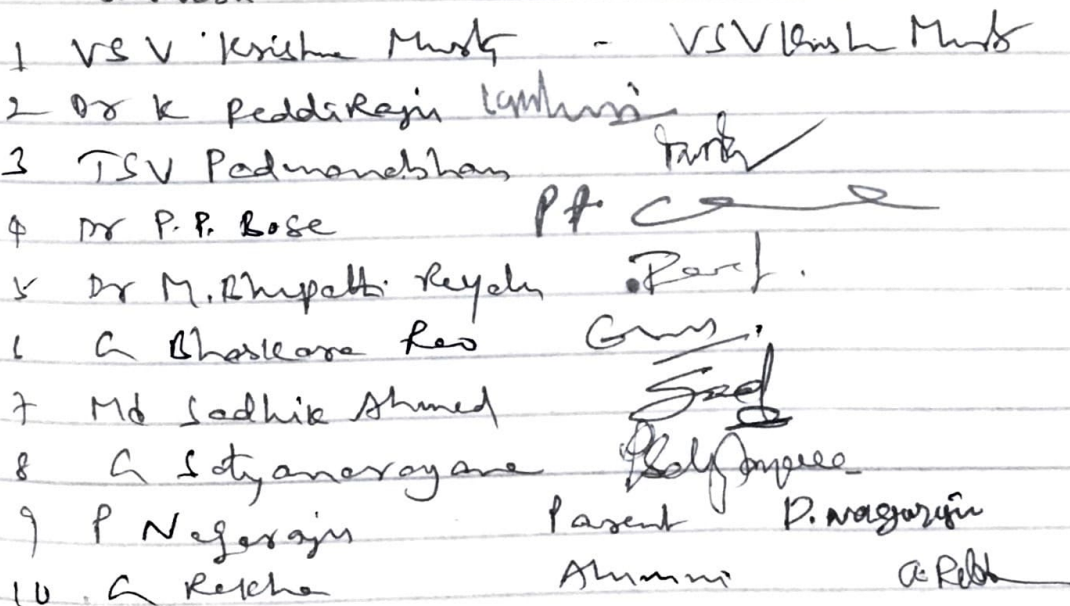 1 VSV Krishna Murty - VSV Krish Murty
2 Dr K PeddiRaju
3 TSV Padmanabhan
4 Dr P.P. Bose
5 Dr M. Bhupathi Rayalu
6 G Bhaskara Rao
7 Md Sadhik Ahmed
8 G Satyanarayana
9 P Nagaraju Parent P. Nagaraju
10 G Rekha Alumni G. Rekha